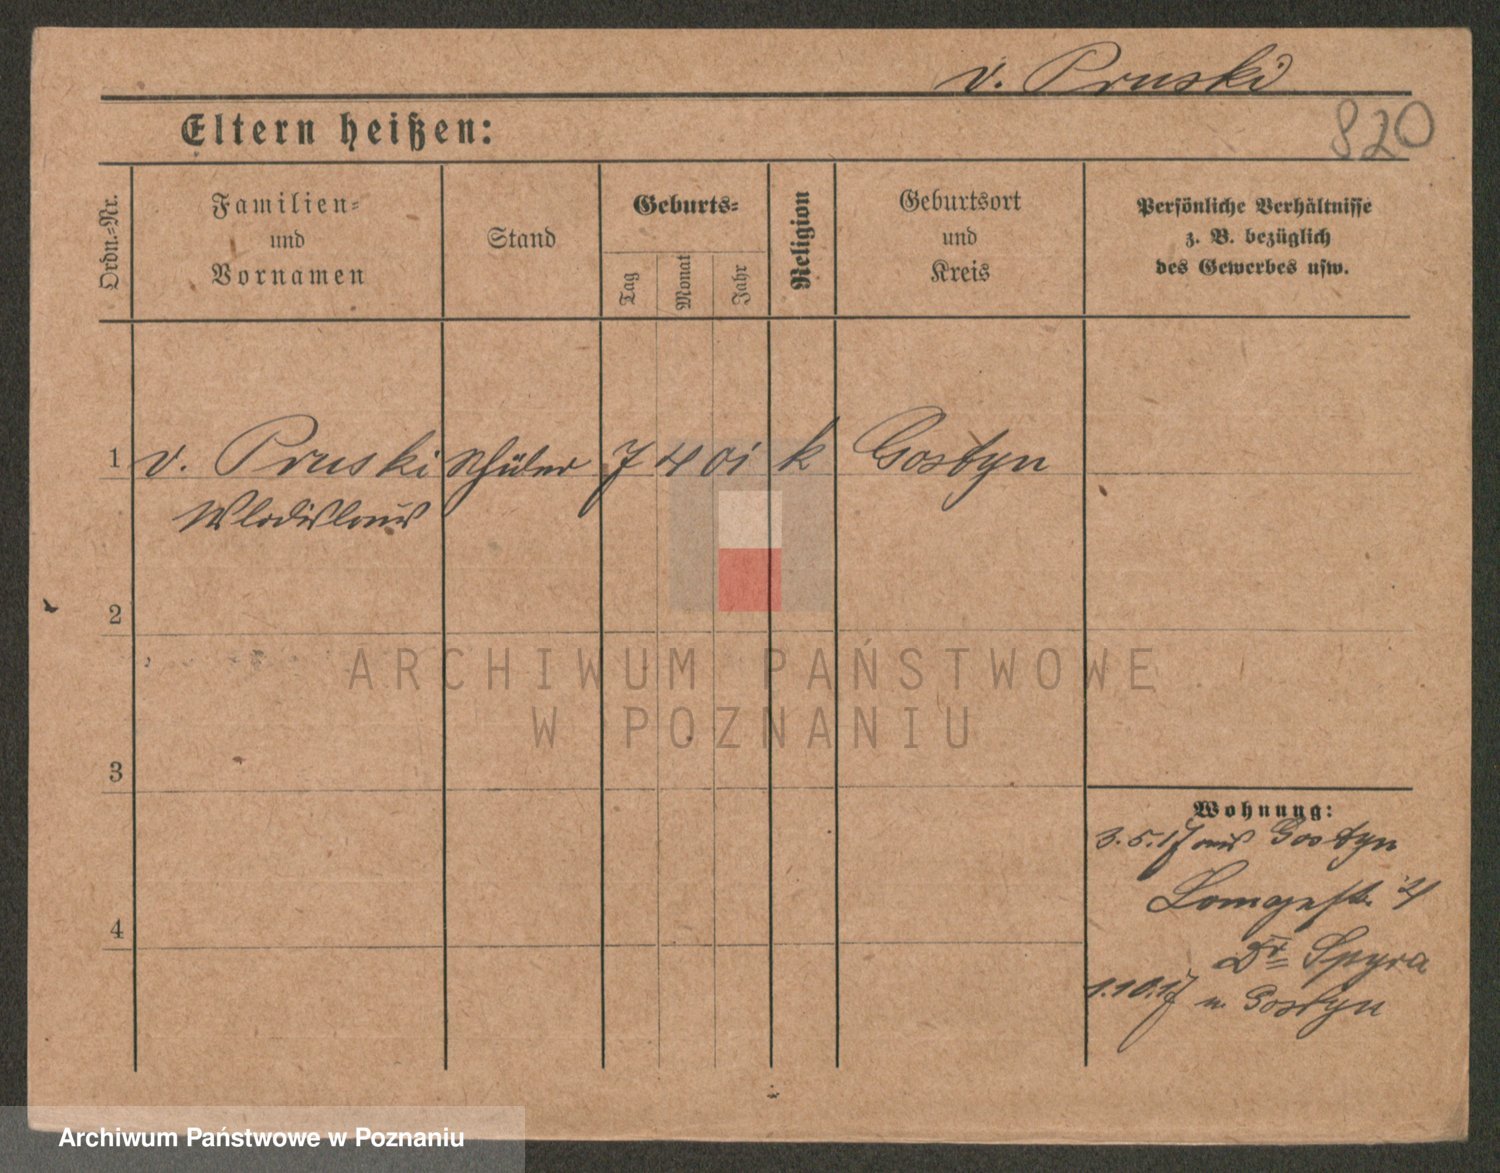 v. Pruski
820
Eltern heißen:
Ordn.-Nr.
Familien-
und
Vornamen
Stand
Geburts-
Tag
Monat
Jahr
Religion
Geburtsort
und
Kreis
Persönliche Verhältnisse
z. B. bezüglich
des Gewerbes usw.
1 v. Pruski Schüler 7 4 01 k Gostyn
Wladislaus
2
3
4
Wohnung:
3.5.17 aus Gostyn
Dr Spyra
1.10.17 n. Gostyn
ARCHIWUM PAŃSTWOWE
W POZNANIU
Archiwum Państwowe w Poznaniu